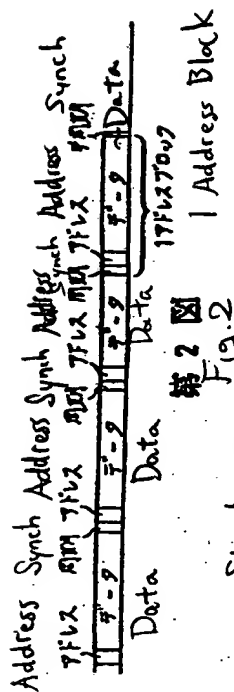 Address Synch Address Synch Address Synch Address Synch
アドレス 同期 アドレス 同期 アドレス 同期 アドレス 同期
データ データ データ データ
Data Data Data Data
1アドレスブロック
第2図
Fig.2
1 Address Block